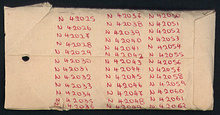 N 42025 N 42037 N 42050
N 42026 N 42038 N 42051
N 42027 N 42039 N 42052
N 42028 N 42040 N 42053
N 42029 N 42041 N 42054
N 42030 N 42042 N 42055
N 42031 N 42043 N 42056
N 42032 N 42044 N 42057
N 42033 N 42045 N 42058
N 42034 N 42046 N 42059
N 42035 N 42047 N 42060
N 42048 N 42061
N 42062